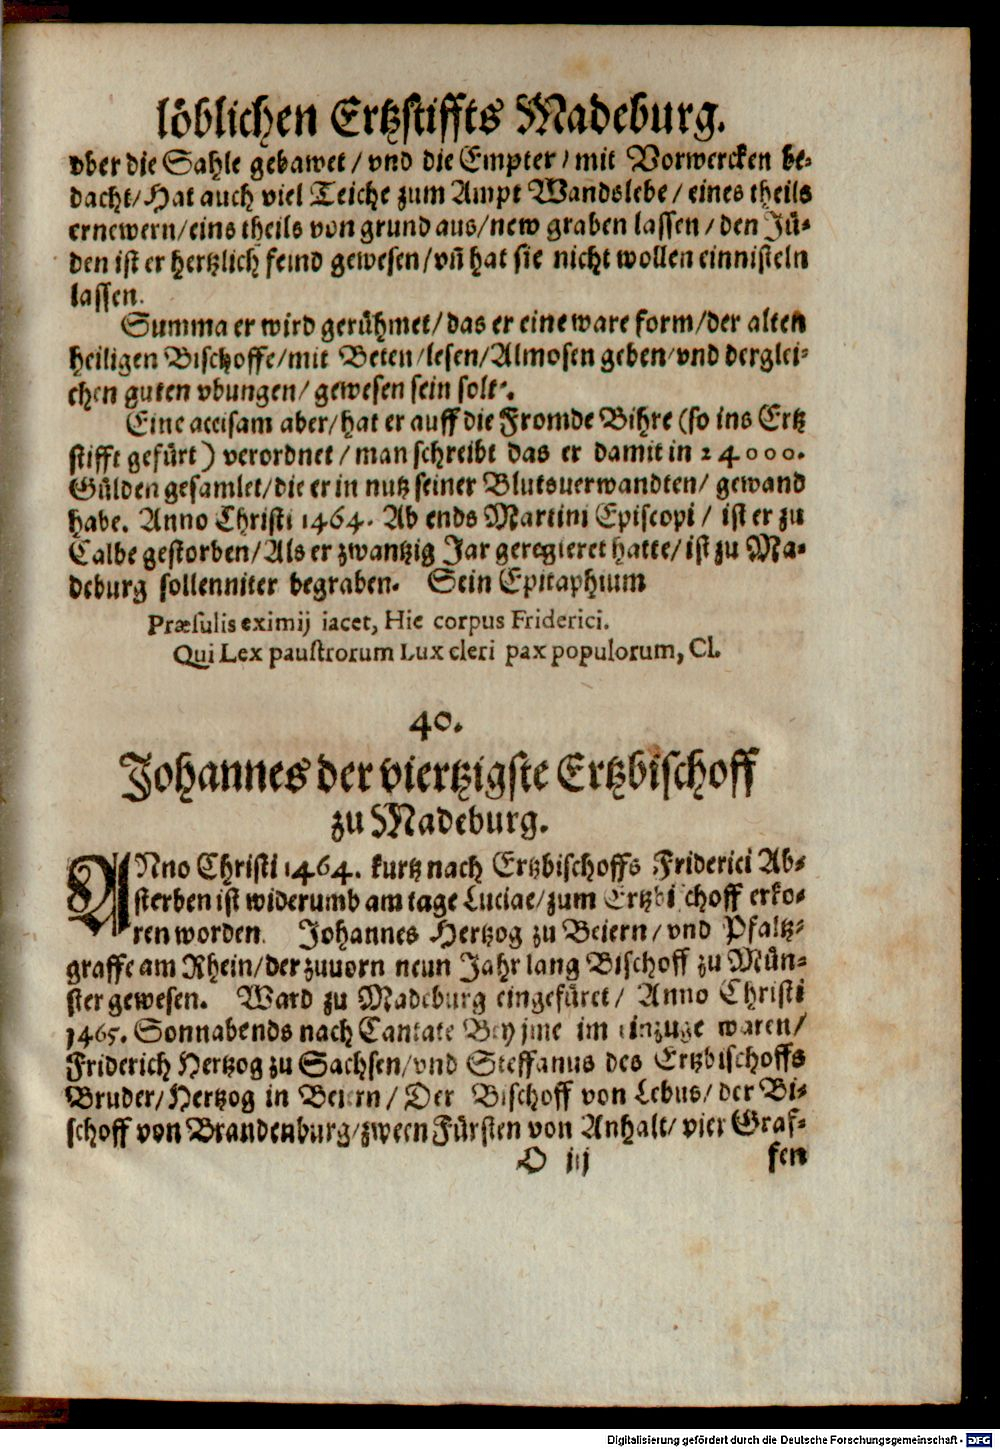 löblichen Ertzstiffts Madeburg.
vber die Sahle gebawet / vnd die Empter / mit Vorwercken be-
dacht / Hat auch viel Teiche zum Ampt Wandslebe / eines theils
ernewern / eins theils von grund aus / new graben lassen / den Jü-
den ist er hertzlich feind gewesen / vñ hat sie nicht wollen einnisteln
lassen.
Summa er wird gerühmet / das er eine ware form / der alten
heiligen Bischoffe / mit Beten / lesen / Almosen geben / vnd derglei-
chen guten vbungen / gewesen sein solt.
Eine accisam aber / hat er auff die Fromde Bihre (so ins Ertz
stifft gefürt) verordnet / man schreibt das er damit in 24000.
Gülden gesamlet / die er in nutz seiner Blutsuerwandten / gewand
habe. Anno Christi 1464. Abends Martini Episcopi / ist er zu
Calbe gestorben / Als er zwantzig Jar geregieret hatte / ist zu Ma-
deburg sollenniter begraben. Sein Epitaphium
Præsulis eximij iacet, Hic corpus Friderici.
Qui Lex paustrorum Lux cleri pax populorum, Cl.
40.
Johannes der viertzigste Ertzbischoff
zu Madeburg.
ANno Christi 1464. kurtz nach Ertzbischoffs Friderici Ab-
sterben ist widerumb am tage Luciae / zum Ertzbischoff erko-
ren worden. Johannes Hertzog zu Beiern / vnd Pfaltz-
graffe am Rhein / der zuuorn neun Jahr lang Bischoff zu Mün-
ster gewesen. Ward zu Madeburg eingefüret / Anno Christi
1465. Sonnabends nach Cantate Bey jme im einzuge waren /
Friderich Hertzog zu Sachsen / vnd Steffanus des Ertzbischoffs
Bruder / Hertzog in Beiern / Der Bischoff von Lebus / der Bi-
schoff von Brandenburg / zween Fürsten von Anhalt / vier Graf-
O iij fen
Digitalisierung gefördert durch die Deutsche Forschungsgemeinschaft - DFG